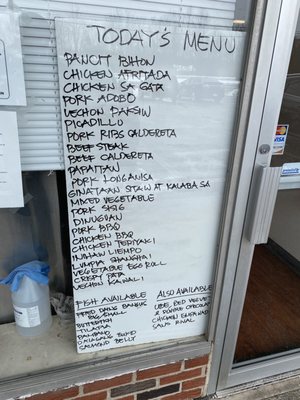 TODAY'S MENU
PANCIT BIHON
CHICKEN AFRITADA
CHICKEN SA GATA
PORK ADOBO
LECHON PAKSIW
PICADILLO
PORK RIBS CALDERETA
BEEF STEAK
BEEF CALDERETA
PAPAITAN
PORK LONGANISA
GINATAAN SITAW AT KALABASA
MIXED VEGETABLE
PORK SISIG
DINUGUAN
PORK BBQ
CHICKEN BBQ
CHICKEN TERIYAKI
INIHAW LIEMPO
LUMPIA SHANGHAI
VEGETABLE EGG ROLL
CRISPY PATA
LECHON KAWALI
FISH AVAILABLE
FRIED DAING BANGUS
BIG/SMALL
BUTTERFISH
TILAPIA
PAMPANO
GALUNGGONG
SALMON BELLY
ALSO AVAILABLE
UBE, RED VELVET
CHICKEN
VISA